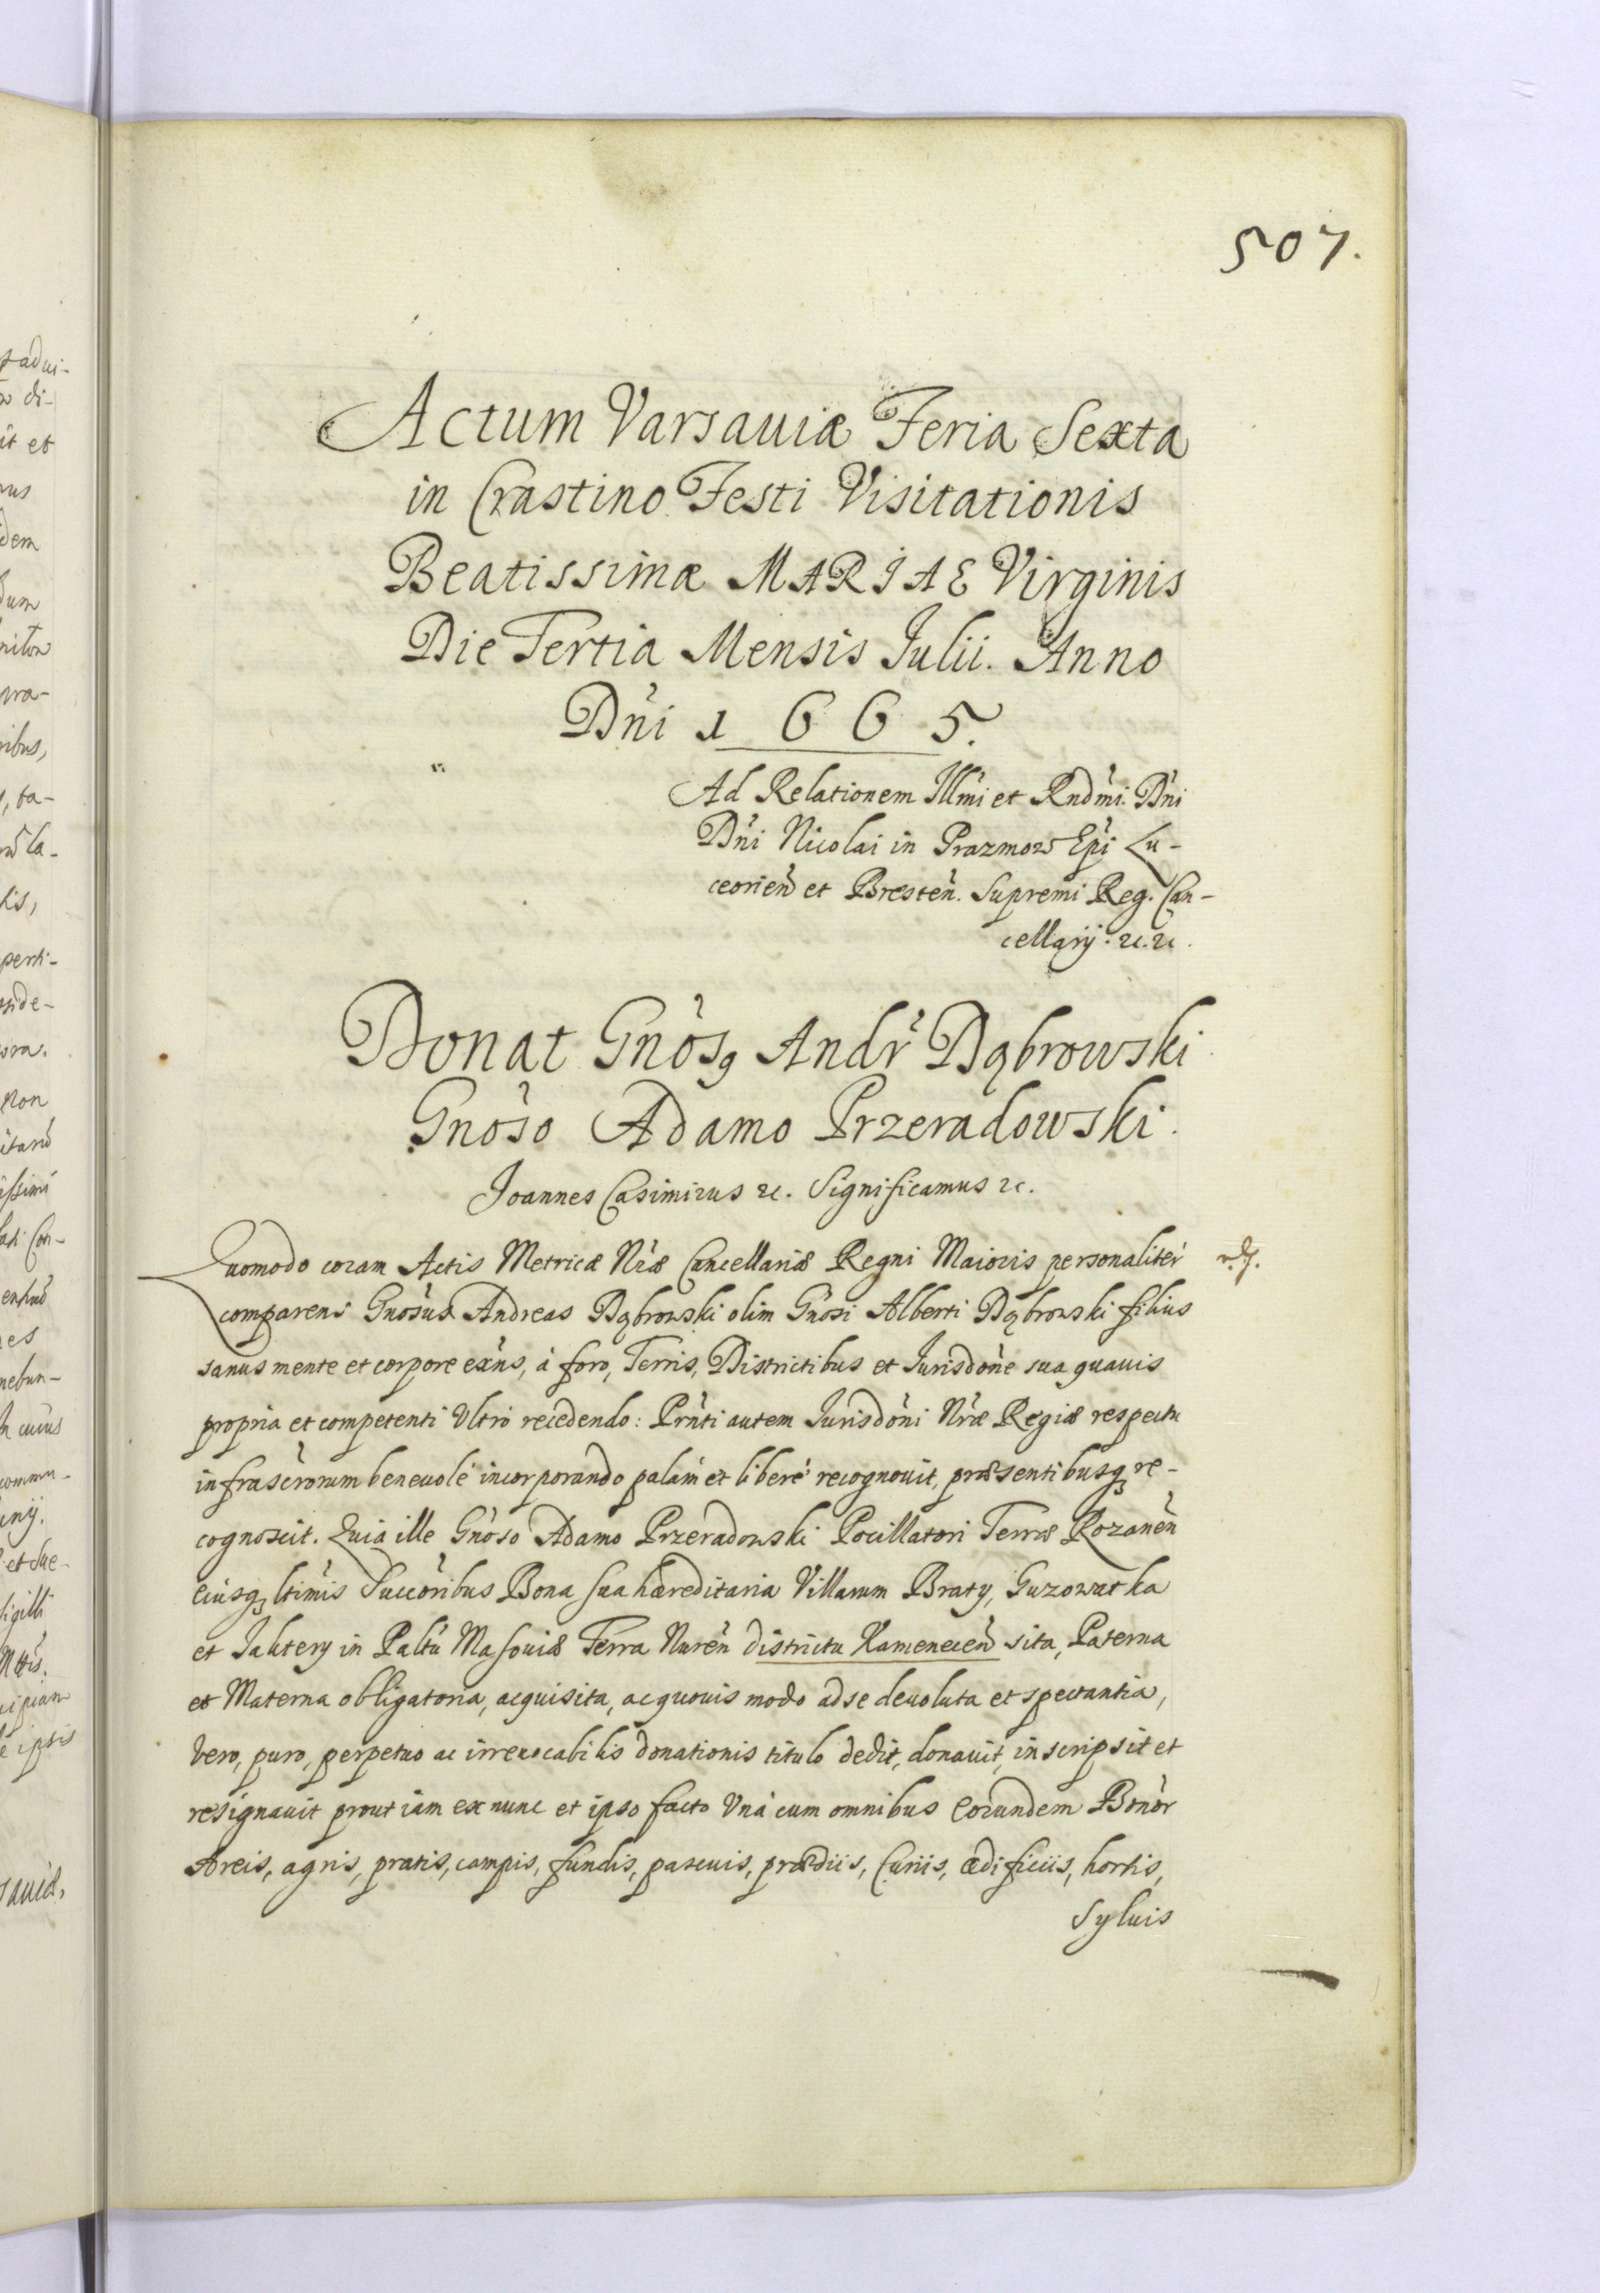 507.
Actum Varsauiæ Feria Sexta
in Crastino Festi Visitationis
Beatissimæ MARIAE Virginis
Die Tertia Mensis Iulii. Anno
Dñi 1665.
Ad Relationem Illm̃i et Rndm̃i Dñi
Dñi Nicolai in Prazmow Ep̃i Lu-
ceorieñ et Bresteñ. Supremi Reg. Can-
cellarij. &c. &c.
Donat Gños9 Andr̃ Dąbrowski
Gñoso Adamo Przeradowski.
Joannes Casimirus &c. Significamus &c.
Quomodo coram Actis Metricæ Nr̃æ Cancellariæ Regni Maioris personalitèr
comparens Gnõsus Andreas Dąbrowski olim Gñosi Alberti Dąbrowski filius
sanus mente et corpore exñs, à foro, Terris, Districtibus et Jurisdõne sua quauis
propria et competenti Vltrò recedendo: Prñti autem Jurisdõni Nr̃æ Regiæ respectu
infrascr̃orum beneuolè incorporando palàm et liberè recognouit, præsentibusq3 re-
cognoscit. Quia ille Gñoso Adamo Przeradowski Pocillatori Terræ Rozaneñ
eiusq3 ltĩmis Succõribus Bona sua hæreditaria Villarum Braty, Guzowatka
et Jaktery in Palt̃u Masouiæ Terra Nureñ districtu Kameneceñ sita, Paterna
et Materna obligatoria, acquisita, ac quouis modo ad se deuoluta et spectantia,
vero, puro, perpetuo ac irreuocabilis donationis titulo dedit, donauit, inscripsit et
resignauit prout iam ex nunc et ipso facto Vnà cum omnibus eorundem Bonõr
Areis, agris, pratis, campis, fundis, pascuis, prædiis, Curiis, ædificiis, hortis,
Syluis